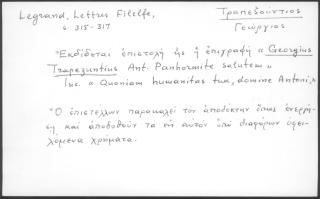 Legrand, Lettres Filelfe,
Τραπεζούντιος
σ. 315-317
Γεώργιος
"Ἐκδίδεται ἐπιστολὴ ἧς ἡ ἐπιγραφὴ « Georgius
Trapezuntius Ant. Panhormite salutem »
Inc. « Quoniam humanitas tua, domine Antoni,»
"Ὁ ἐπιστέλλων παρακαλεῖ τὸν ἀποδέκτην ὅπως ἐνεργή-
σῃ καὶ ἀποδοθοῦν τὰ εἰς αὐτὸν ὑπὸ διαφόρων ὀφει-
λόμενα χρήματα.